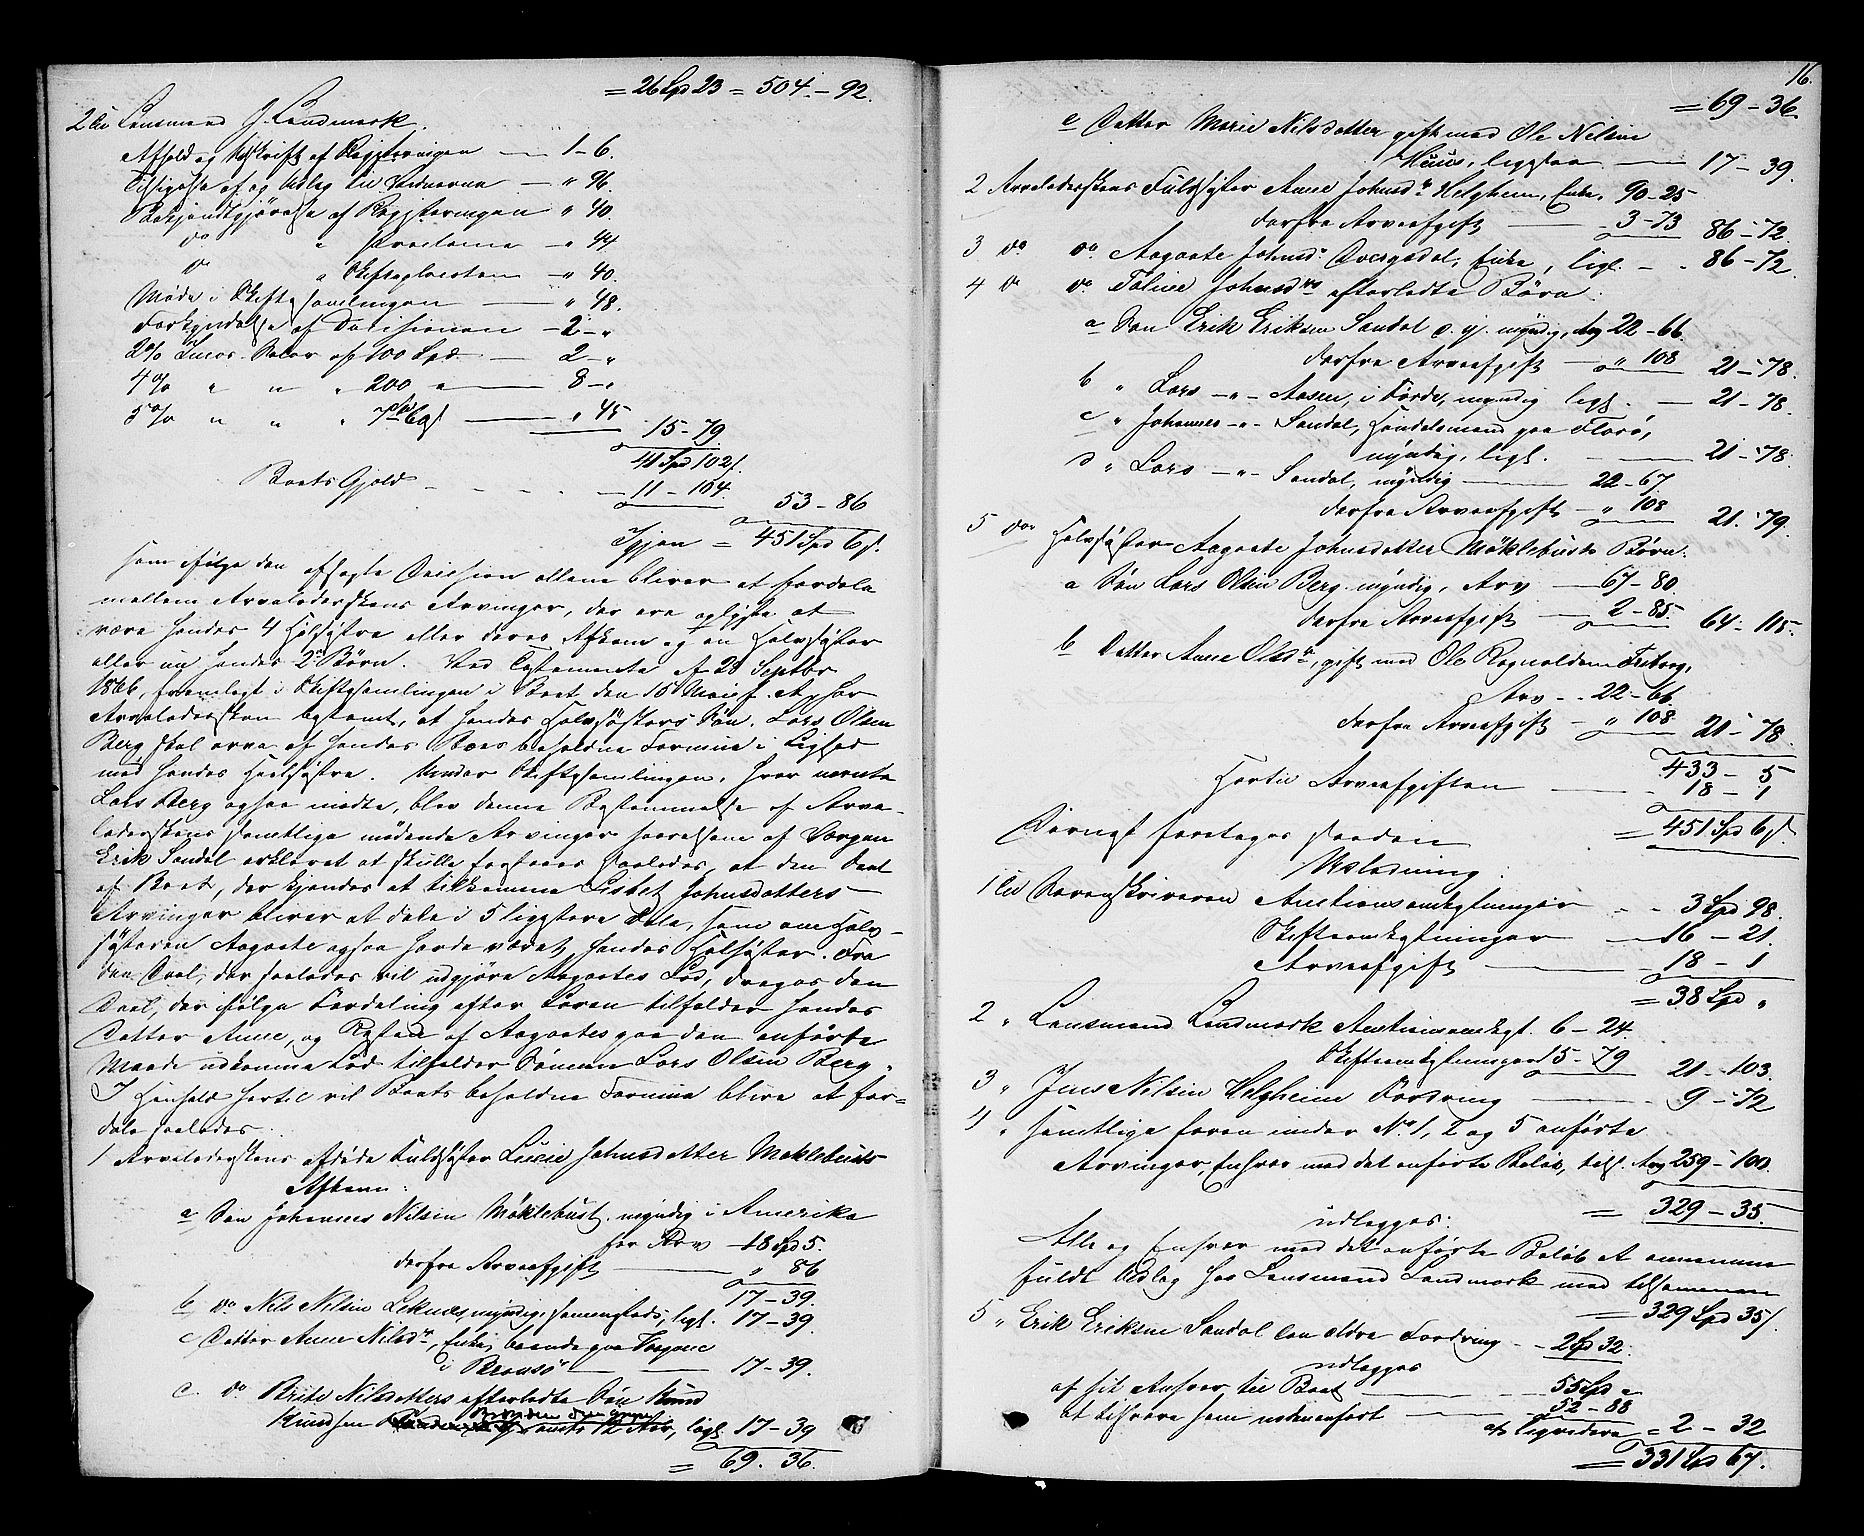 = 26 Spd 23 = 504 - 92.
2 til Lensmand J. Landmark.
Afhold og Udskrift af Registreringen — 1 - 6.
Tilsigelse af og Udlæg til Vidnerne — " 96.
Bekjendtgjørelse af Registreringen " 40.
do " Proclama — " 44
do " Skifteslutten — " 40.
Møde i Skiftesamlingen — " 48.
Forkyndelse af Decisionen — 2 - "
2 % Incas. Salær af 100 Spd — 2 - "
4 % " " " 200 " — 8 - "
5 % " " " 7 — " 45
15 - 79
41 Spd 102 s.
Boets Gjeld — 11 - 104. 53 - 86
Igjen = 451 Spd 6 s.
som ifølge den afsagte Decision allene bliver at fordele
mellem Arveladerskens Arvinger, der ere oplyste at
være hendes 4 Helsøstre eller deres Afkom og en Halvsøster
eller nu hendes 2de Børn. Ved Testamente af 20 Septbr
1866, fremlagt i Skiftesamlingen i Boet den 15 Mai s. A. har
Arveladersken bestemt, at hendes Halvsøsters Søn, Lars Olsen
Berg skal arve af hendes Boes beholdne Formue i Lighed
med hendes Helsøstre. Under Skiftesamlingen, hvor nævnte
Lars Berg ogsaa mødte, blev denne Bestemmelse af Arve-
laderskens samtlige mødende Arvinger saavelsom af Værgen
Erik Sandal erklæret at skulle forstaaes saaledes, at den Deel
af Boet, der kjendes at tilkomme Lisbet Johnsdatters
Arvinger bliver at dele i 5 ligestore Dele, som om Halv-
søsteren Aagaate ogsaa havde været hendes Helsøster. Fra
den Deel, der saaledes vil udgjøre Aagaates Lod, drages den
Deel, der ifølge Fordeling efter Loven tilfalder hendes
Datter Anne, og Resten af Aagaates paa den anførte
Maade udkomne Lod tilfalder Sønnen Lars Olsen Berg.
I Henhold hertil vil Boets beholdne Formue blive at for=
dele saaledes:
1 Arveladerskens afdøde Fuldsøster Lucie Johnsdatter Møklebusts
Afkom:
a Søn Johannes Nilsen Møklebust, myndig i Amerika
for Arv - 18 Spd 5.
derfra Arveafgift — " 86
17 - 39.
b do Nils Nilsen Leknæs, myndig, sammesteds, ligl. 17 - 39.
c Datter Anne Nilsdr, Enke, boende paa
i Bremsø — 17 - 39.
c. do Brite Nilsdatters efterladte Søn Knud
Knudsen 12 Aar, ligl. 17 - 39
= 69 - 36.
16.
= 69 - 36.
e Datter Marie Nilsdatter gift med Ole Nilsen
Huus, ligesaa — 17 - 39.
2 Arveladerskens Fuldsøster Anne Johnsdr Helgheim, Enke, 90 - 25
derfra Arveafgift — 3 - 73 86 - 72.
3 do do Aagaate Johnsdr Dvergsdal, Enke, ligl. - - 86 - 72.
4 do do Johnsdrs efterladte Børn:
a Søn Erik Eriksen Sandal o. gj. myndig, Arv 22 - 66.
derfra Arveafgift — " 108 21 - 78.
b " Lars - " - Aasen, i Førde, myndig ligl. — 21 - 78.
c " Johannes - " - Sandal, Handelsmand paa Florø,
myndig, ligl. — 21 - 78.
d " Lars - " - Sandal, myndig — 22 - 67
derfra Arveafgift - " 108 21 - 79.
5 dos Halvsøster Aagaate Johnsdatter Møklebusts Børn:
a Søn Lars Olsen Berg myndig, Arv — 67 - 80.
derfra Arveafgift — 2 - 85. 64 - 115.
b Datter Anne Olsdr, gift med Ole Rognaldsen Friborg,
Arv - . 22 - 66.
derfra Arveafgift - " 108. 21 - 78.
433 - 5
Hertil Arveafgiften — 18 - 1
= 451 Spd 6 s.
Dernæst foretages saadan
Udlodning:
1 til Sorenskriveren Auctionsomkostninger - - 3 Spd 98.
Skifteomkostninger — 16 - 21.
Arveafgift — 18 - 1
= 38 Spd "
2 " Lensmand Landmark Auctionsomkost. 6 - 24.
Skifteomkostninger 15 - 79 21 - 103.
3 " Jens Nilsen Helgheim Fordring — 9 - 72
4 " samtlige foran under No 1, 2 og 5 anførte
Arvinger, Enhver med det anførte Beløb, tils. Arv 259 - 100.
= 329 - 35.
udlægges:
Alle og Enhver med det anførte Beløb at annamme
fuldt Udlæg hos Lensmand Landmark med tilsammen
= 329 Spd 35 s.
5 " Erik Eriksen Sandal den ældre Fordring - 2 Spd 32.
udlægges
af sit Ansvar til Boet — 55 Spd "
at tilsvare som nedenanført — 52 - 88
at liqvidere = 2 - 32
= 331 Spd 67.